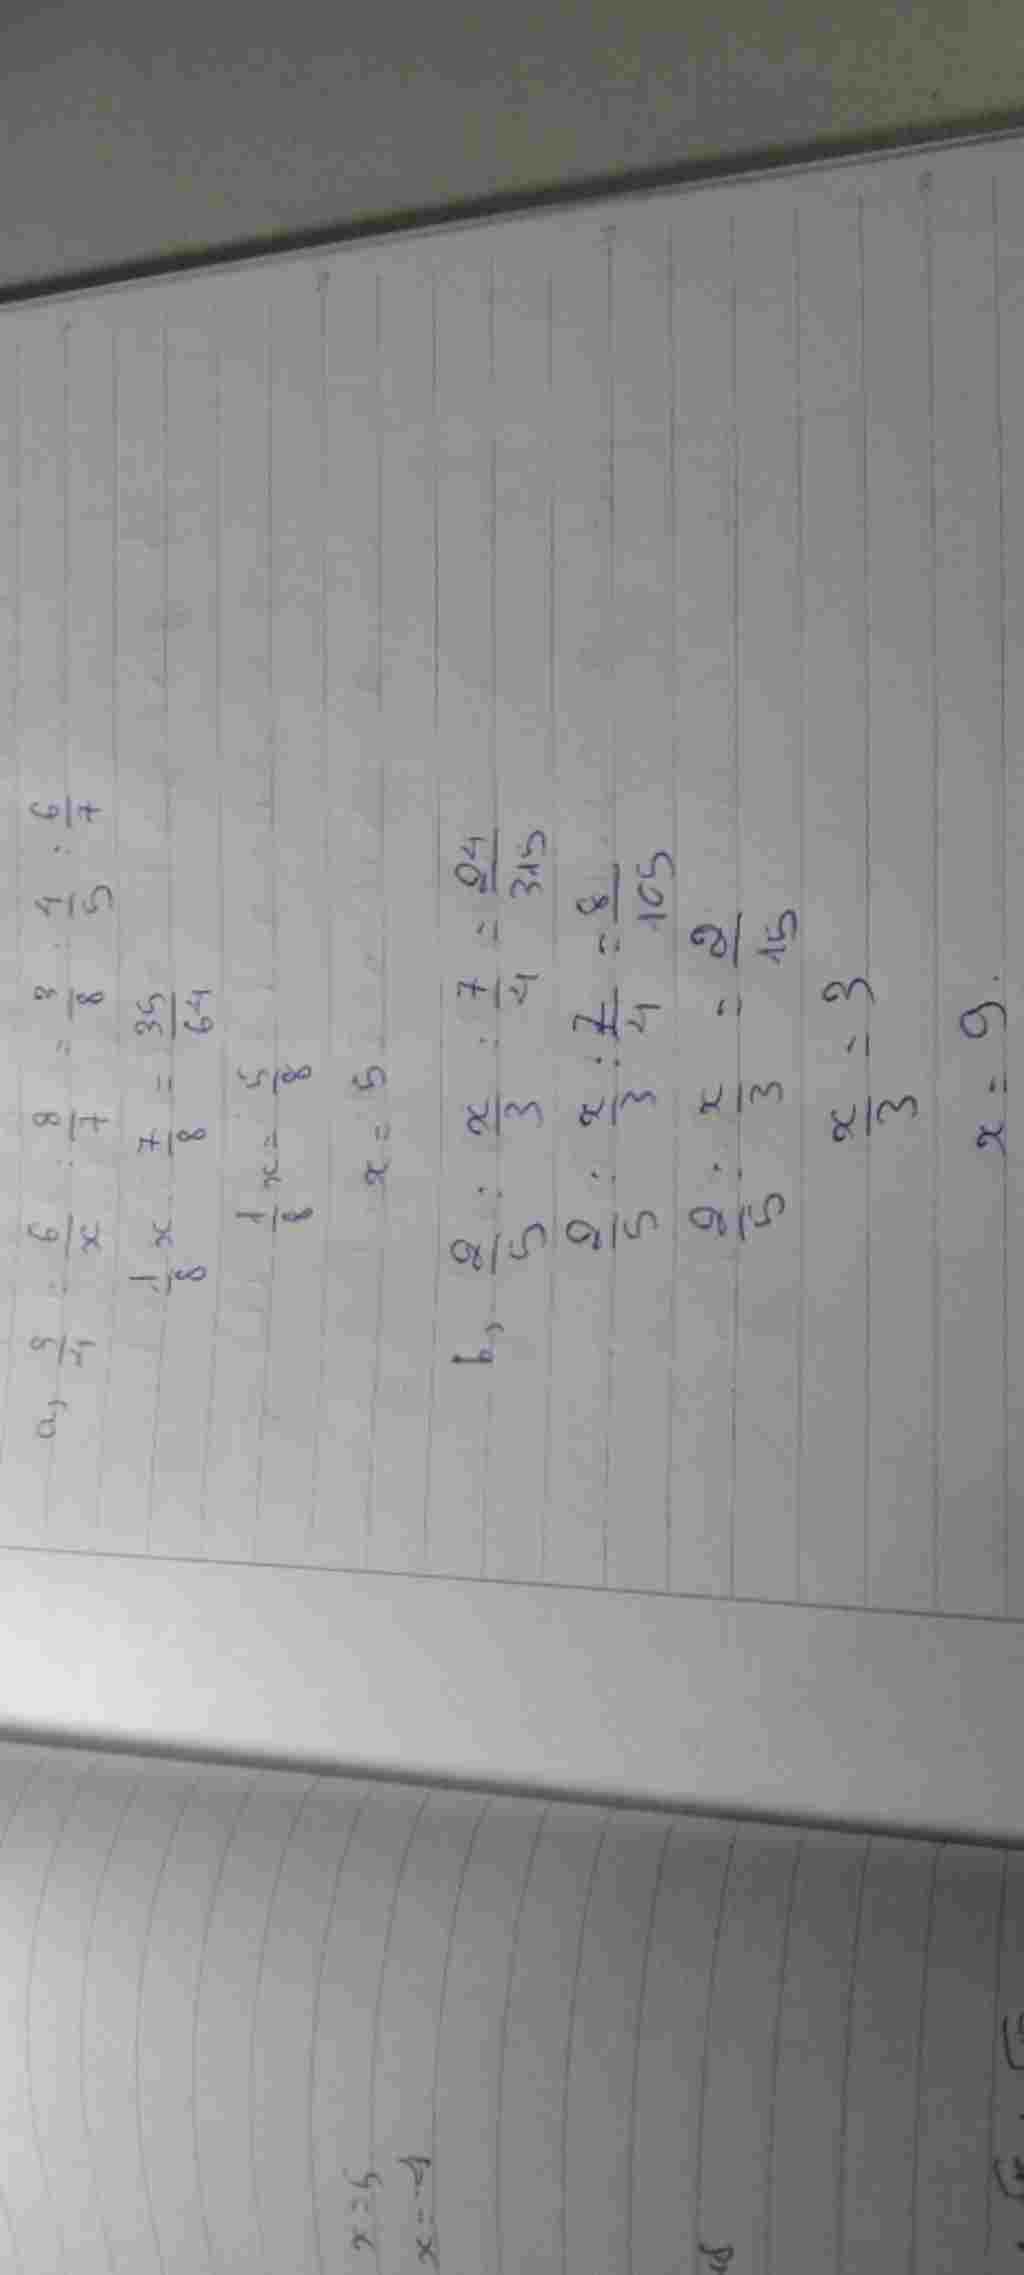 a, 5/4 : 6/x : 8/7 = 3/8 : 4/5 : 6/7
1/8 x . 7/8 = 35/64
1/8 x = 5/8
x = 5
b, 2/5 : x/3 : 7/4 = 24/315
2/5 : x/3 : 7/4 = 8/105
2/5 : x/3 = 2/15
x/3 = 3
x = 9.
x = 5
x = -4